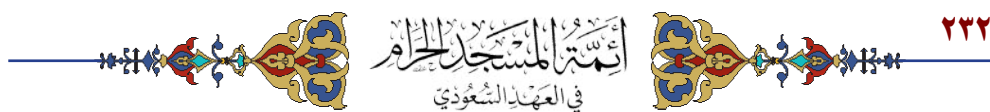 ٢٣٢
أئمة المسجد الحرام
في العهد السعودي